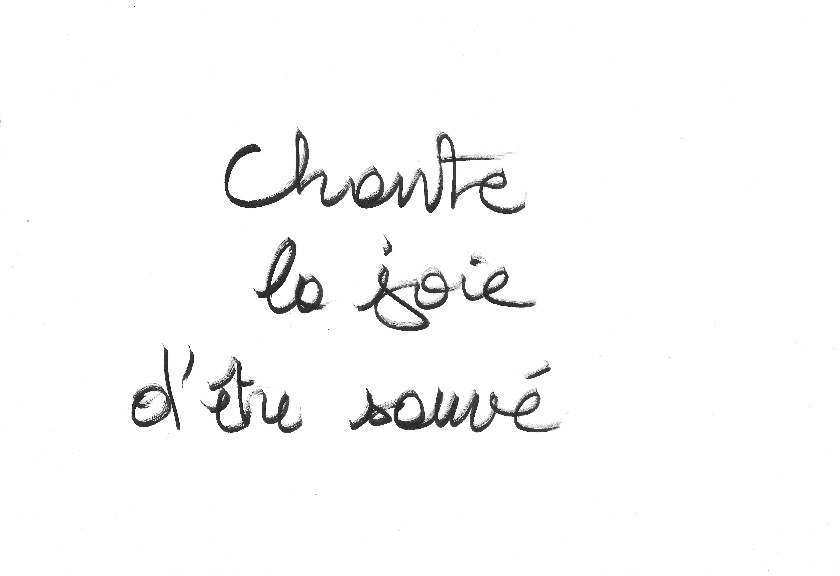 Chante
la joie
d'être sauvé